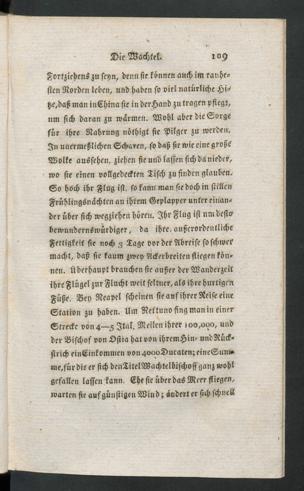 Die Wachtel. 109
Fortziehens zu seyn, denn sie können auch im rauhe-
sten Norden leben, und haben so viel natürliche Hi-
tze, daß man in China sie in der Hand zu tragen pflegt,
um sich daran zu wärmen. Wohl aber die Sorge
für ihre Nahrung nöthigt sie Pilger zu werden.
In unermeßlichen Scharen, so daß sie wie eine große
Wolke aussehen, ziehen sie und lassen sich da nieder,
wo sie einen vollgedeckten Tisch zu finden glauben.
So hoch ihr Flug ist, so kann man sie doch in stillen
Frühlingsnächten an ihrem Geplapper unter einan-
der über sich wegziehen hören. Ihr Flug ist um desto
bewundernswürdiger, da ihre außerordentliche
Fettigkeit sie noch 3 Tage vor der Abreise so schwer
macht, daß sie kaum zwey Ackerbreiten fliegen kön-
nen. Überhaupt brauchen sie außer der Wanderzeit
ihre Flügel zur Flucht weit seltner, als ihre hurtigen
Füße. Bey Neapel scheinen sie auf ihrer Reise eine
Station zu haben. Um Nettuno fing man in einer
Strecke von 4—5 Ital. Meilen ihrer 100,000, und
der Bischof von Ostia hat von ihrem Hin- und Rück-
strich ein Einkommen von 4000 Ducaten; eine Sum-
me, für die er sich den Titel Wachtelbischoff ganz wohl
gefallen lassen kann. Ehe sie über das Meer fliegen,
warten sie auf günstigen Wind; ändert er sich schnell